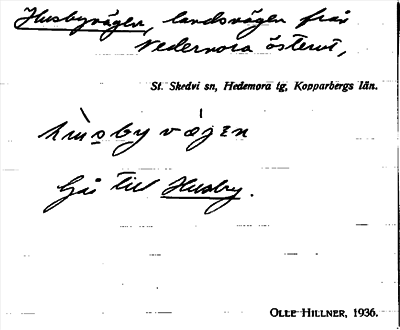 Husbyvägen, landsvägen från
Nedernora österut,
St. Skedvi sn, Hedemora tg, Kopparbergs län.
hùsbyvágen
Går till Husby.
OLLE HILLNER, 1936.